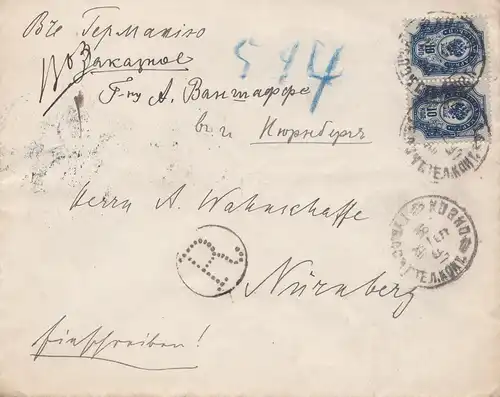 Въ Германію
Заказное
Г-ну А. Ваншаффе
въ г. Нюрнбергъ
514
10
10
Herrn A. Wahnschaffe
КОВНО
R.
Nürnberg
Einschreiben!